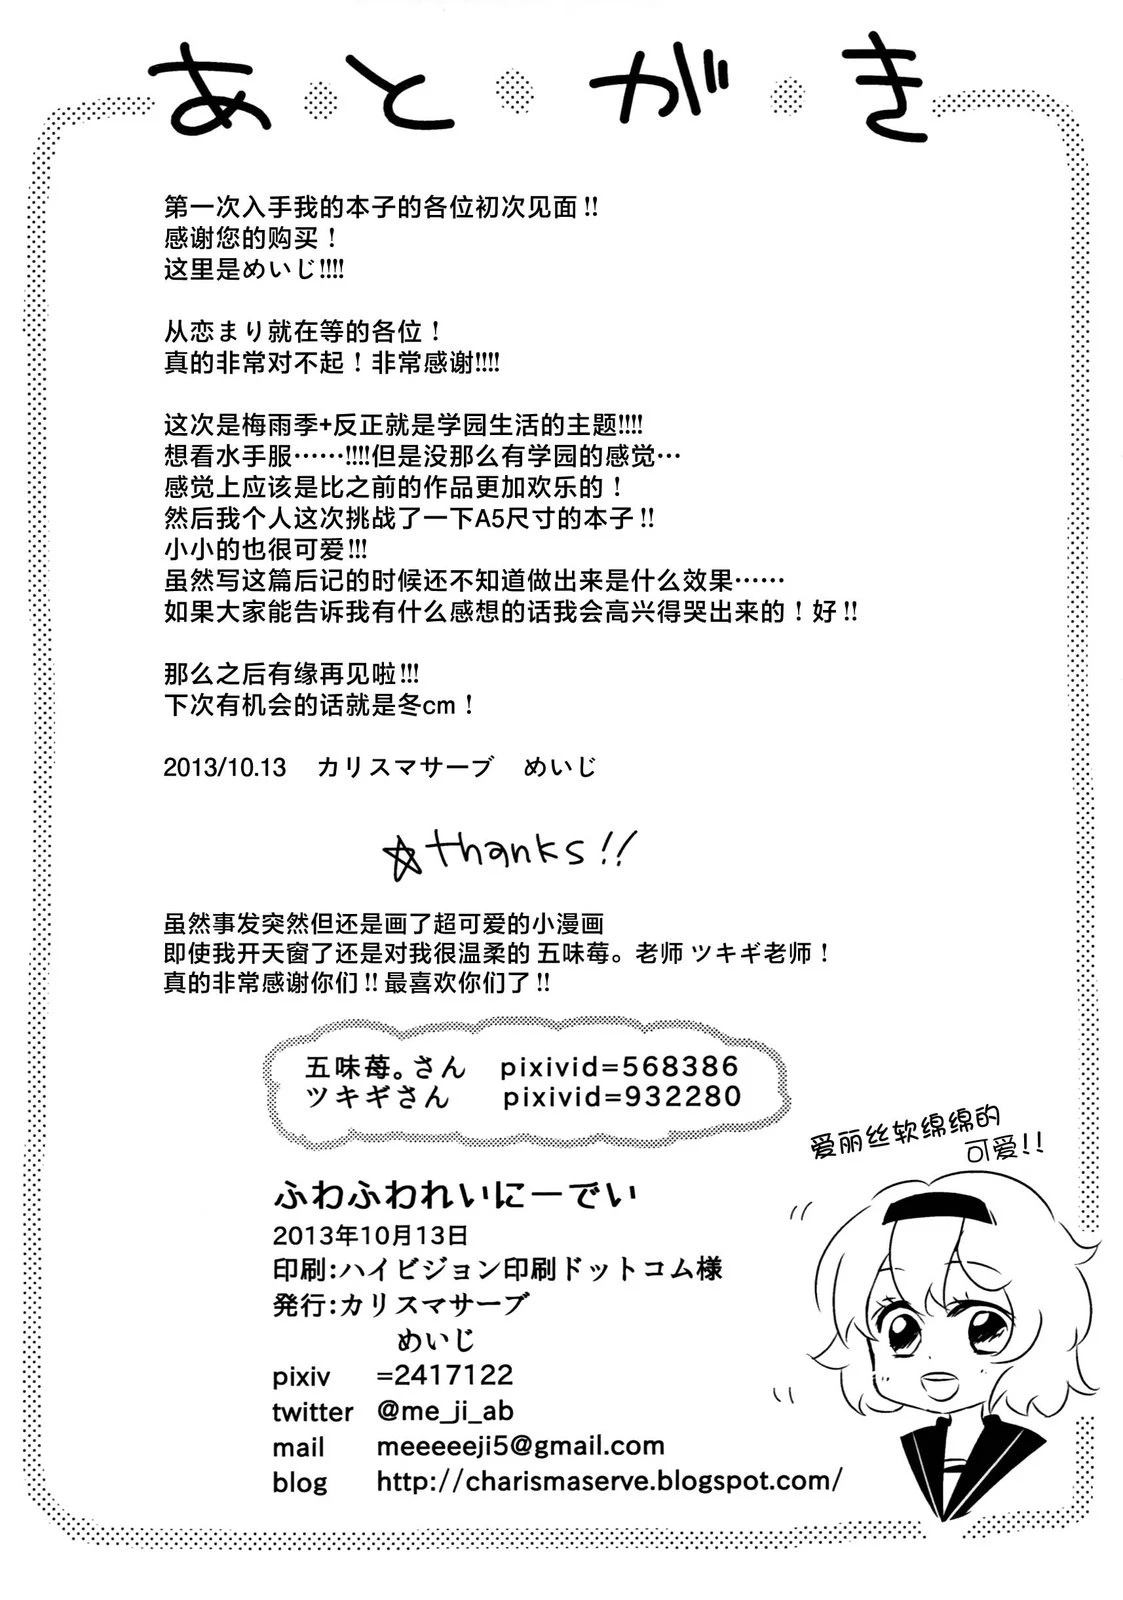 あとがき
第一次入手我的本子的各位初次见面!!
感谢您的购买！
这里是めいじ!!!!
从恋まり就在等的各位！
真的非常对不起！非常感谢!!!!
这次是梅雨季+反正就是学园生活的主题!!!!
想看水手服……!!!!但是没那么有学园的感觉…
感觉上应该是比之前的作品更加欢乐的！
然后我个人这次挑战了一下A5尺寸的本子!!
小小的也很可爱!!!
虽然写这篇后记的时候还不知道做出来是什么效果……
如果大家能告诉我有什么感想的话我会高兴得哭出来的！好!!
那么之后有缘再见啦!!!
下次有机会的话就是冬cm！
2013/10.13 カリスマサーブ めいじ
☆thanks!!
虽然事发突然但还是画了超可爱的小漫画
即使我开天窗了还是对我很温柔的 五味莓。老师 ツキギ老师！
真的非常感谢你们!!最喜欢你们了!!
五味苺。さん pixivid=568386
ツキギさん pixivid=932280
爱丽丝软绵绵的
可爱!!
ふわふわれいにーでい
2013年10月13日
印刷:ハイビジョン印刷ドットコム様
発行:カリスマサーブ
めいじ
pixiv =2417122
twitter @me_ji_ab
mail meeeeeji5@gmail.com
blog http://charismaserve.blogspot.com/